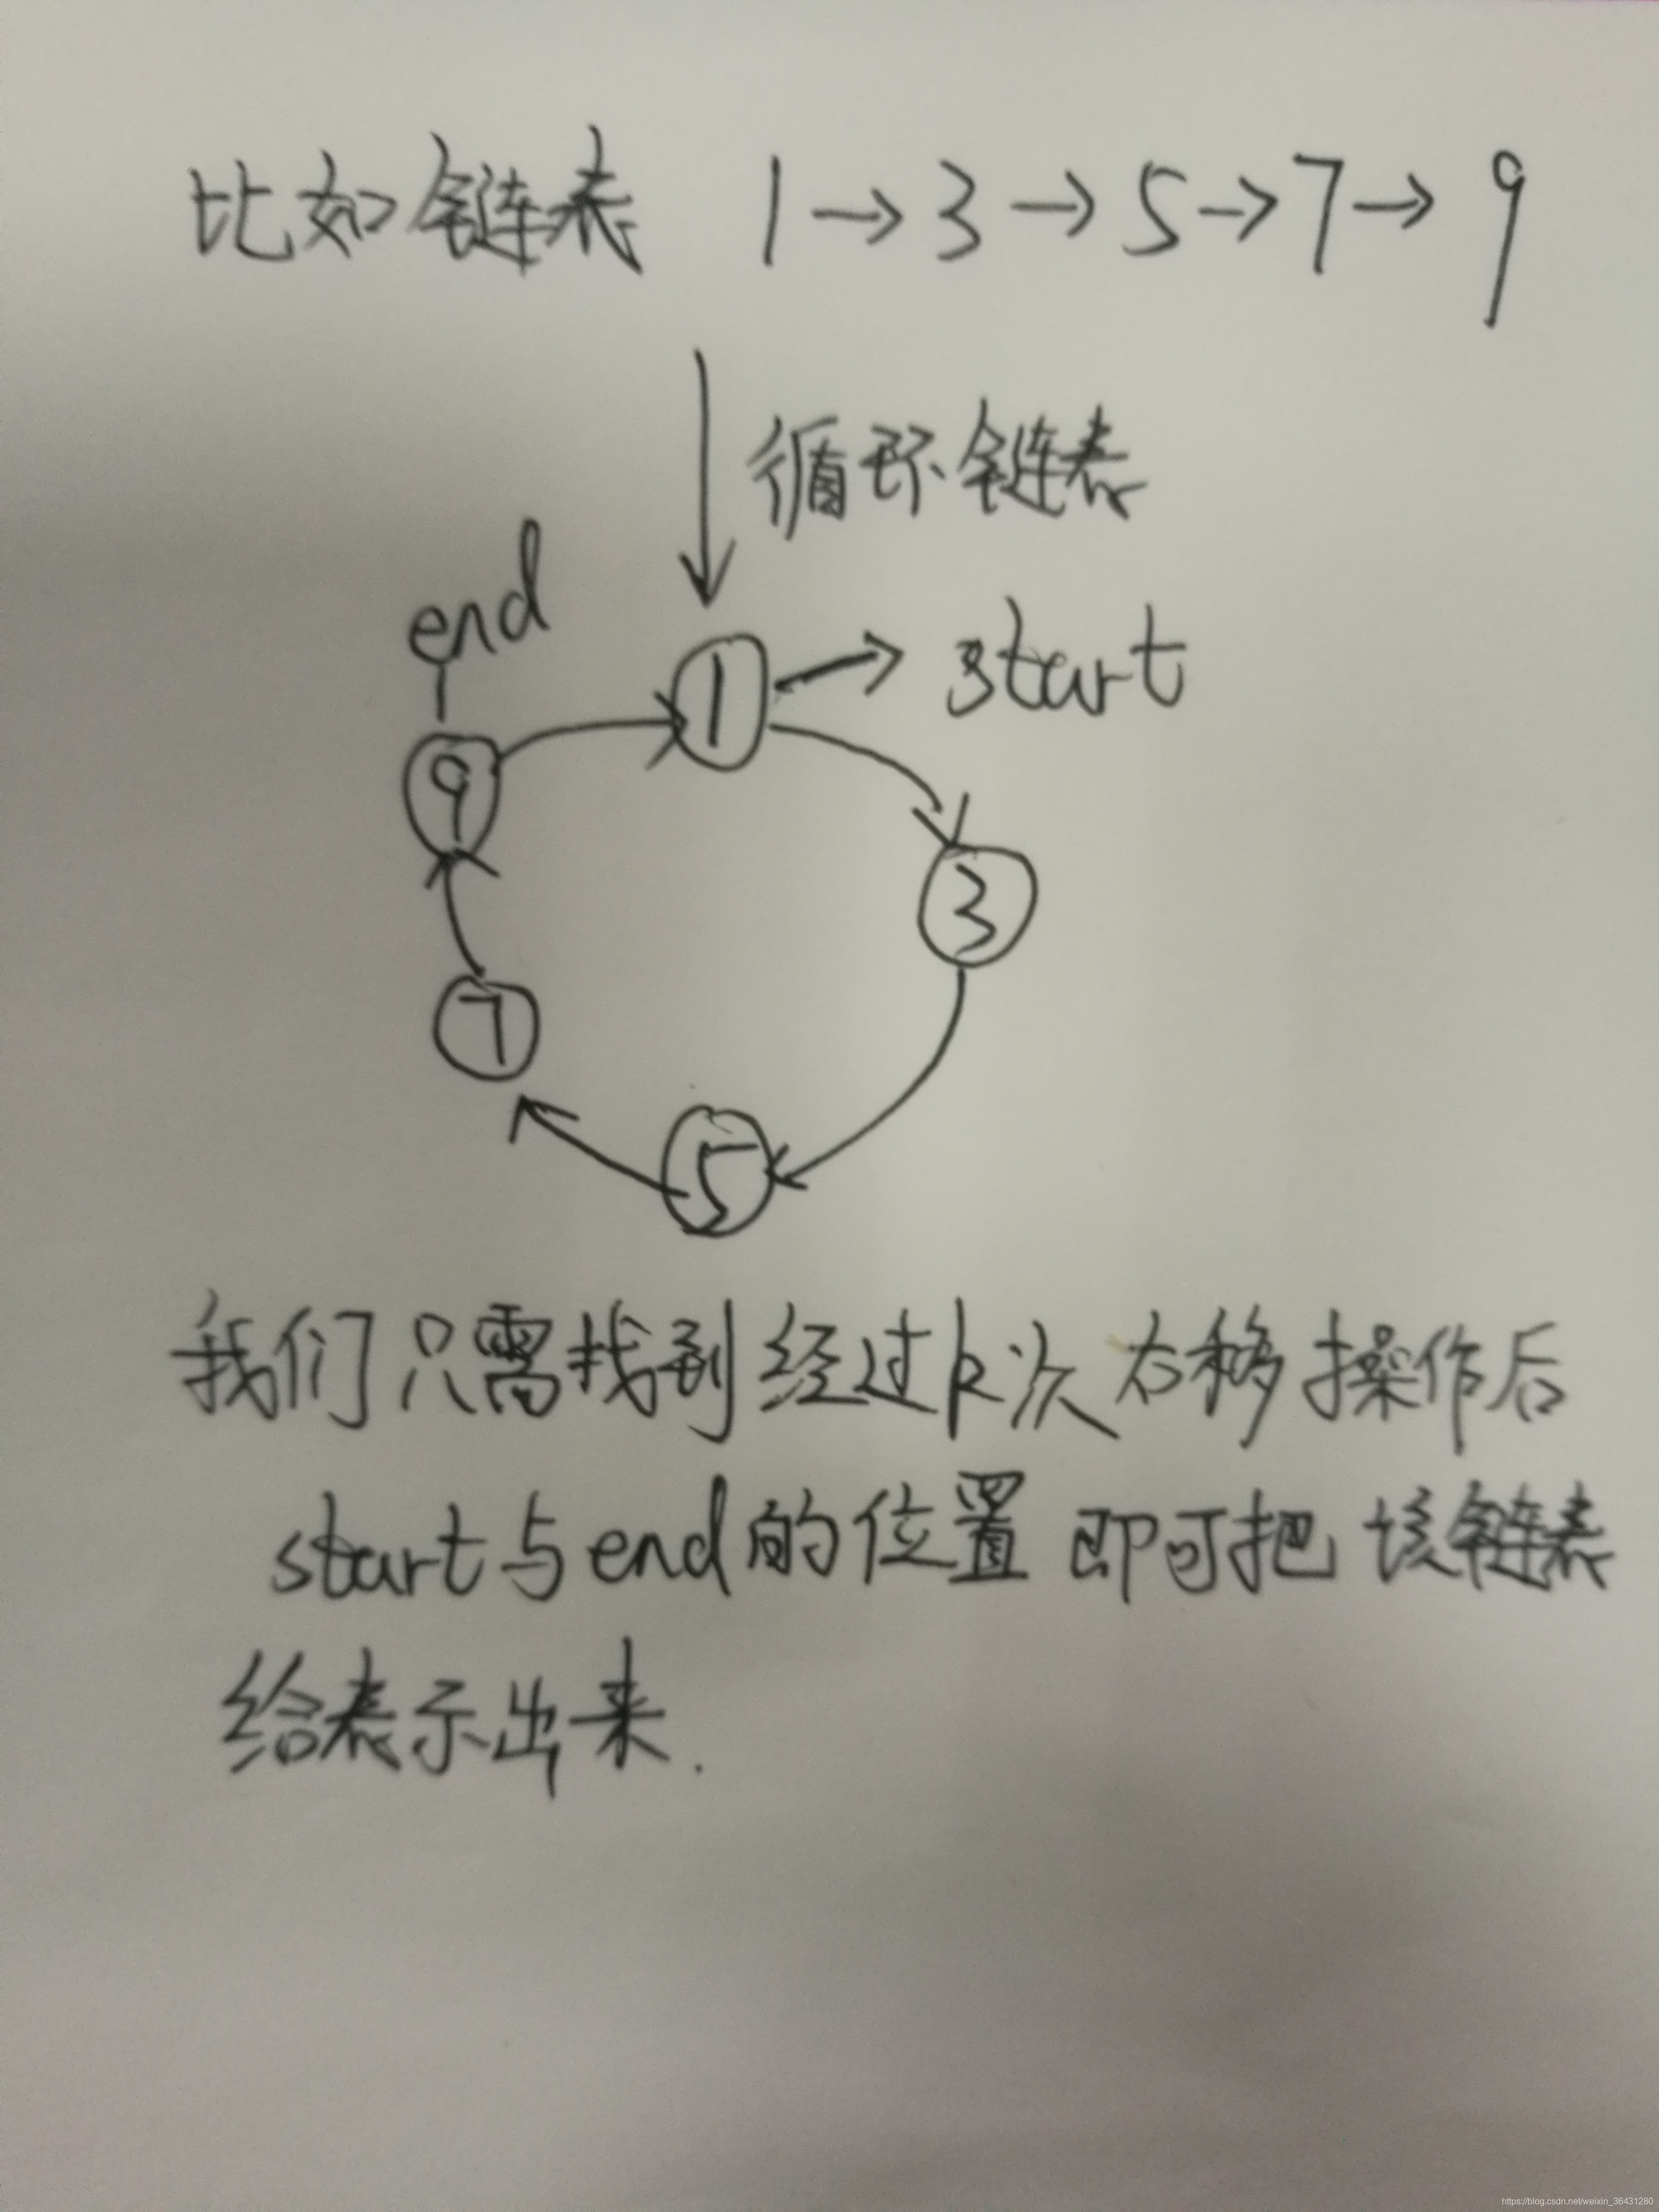 比如链表 1→3→5→7→9
循环链表
end
1 → start
9
3
7
5
我们只需找到经过k次右移操作后
start与end的位置即可把该链表
给表示出来.
https://blog.csdn.net/weixin_36431280